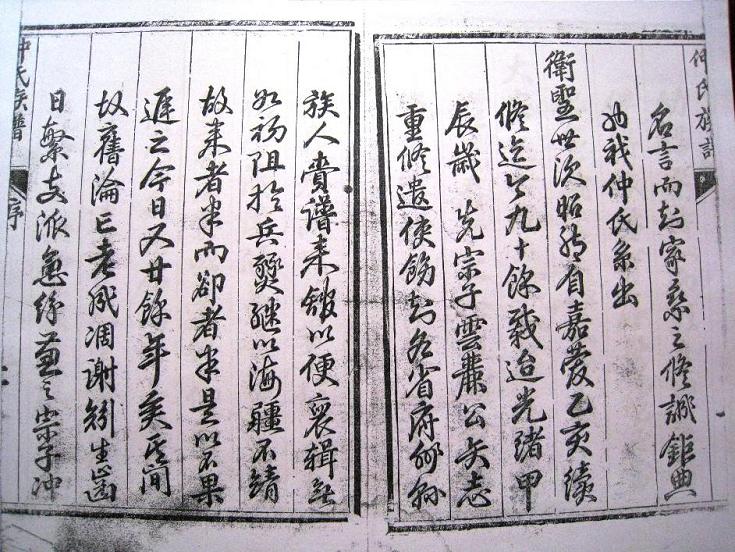 仲氏族譜
名言而知家乘之修誠鉅典
也我仲氏系出
衛聖世次昭然自嘉慶乙亥續
修迄今九十餘載迨光緒甲
辰歲 先宗子雲公矢志
重修遣使飭知各省府州縣
族人賫譜来館以便裒輯無
如初阻於兵燹繼以海疆不靖
故来者半而卻者半是以不果
遲之今日又廿餘年矣其間
故舊淪亡老成凋謝矧生齒
日繁支派愈紛兼之宗子沖
仲氏族譜
序